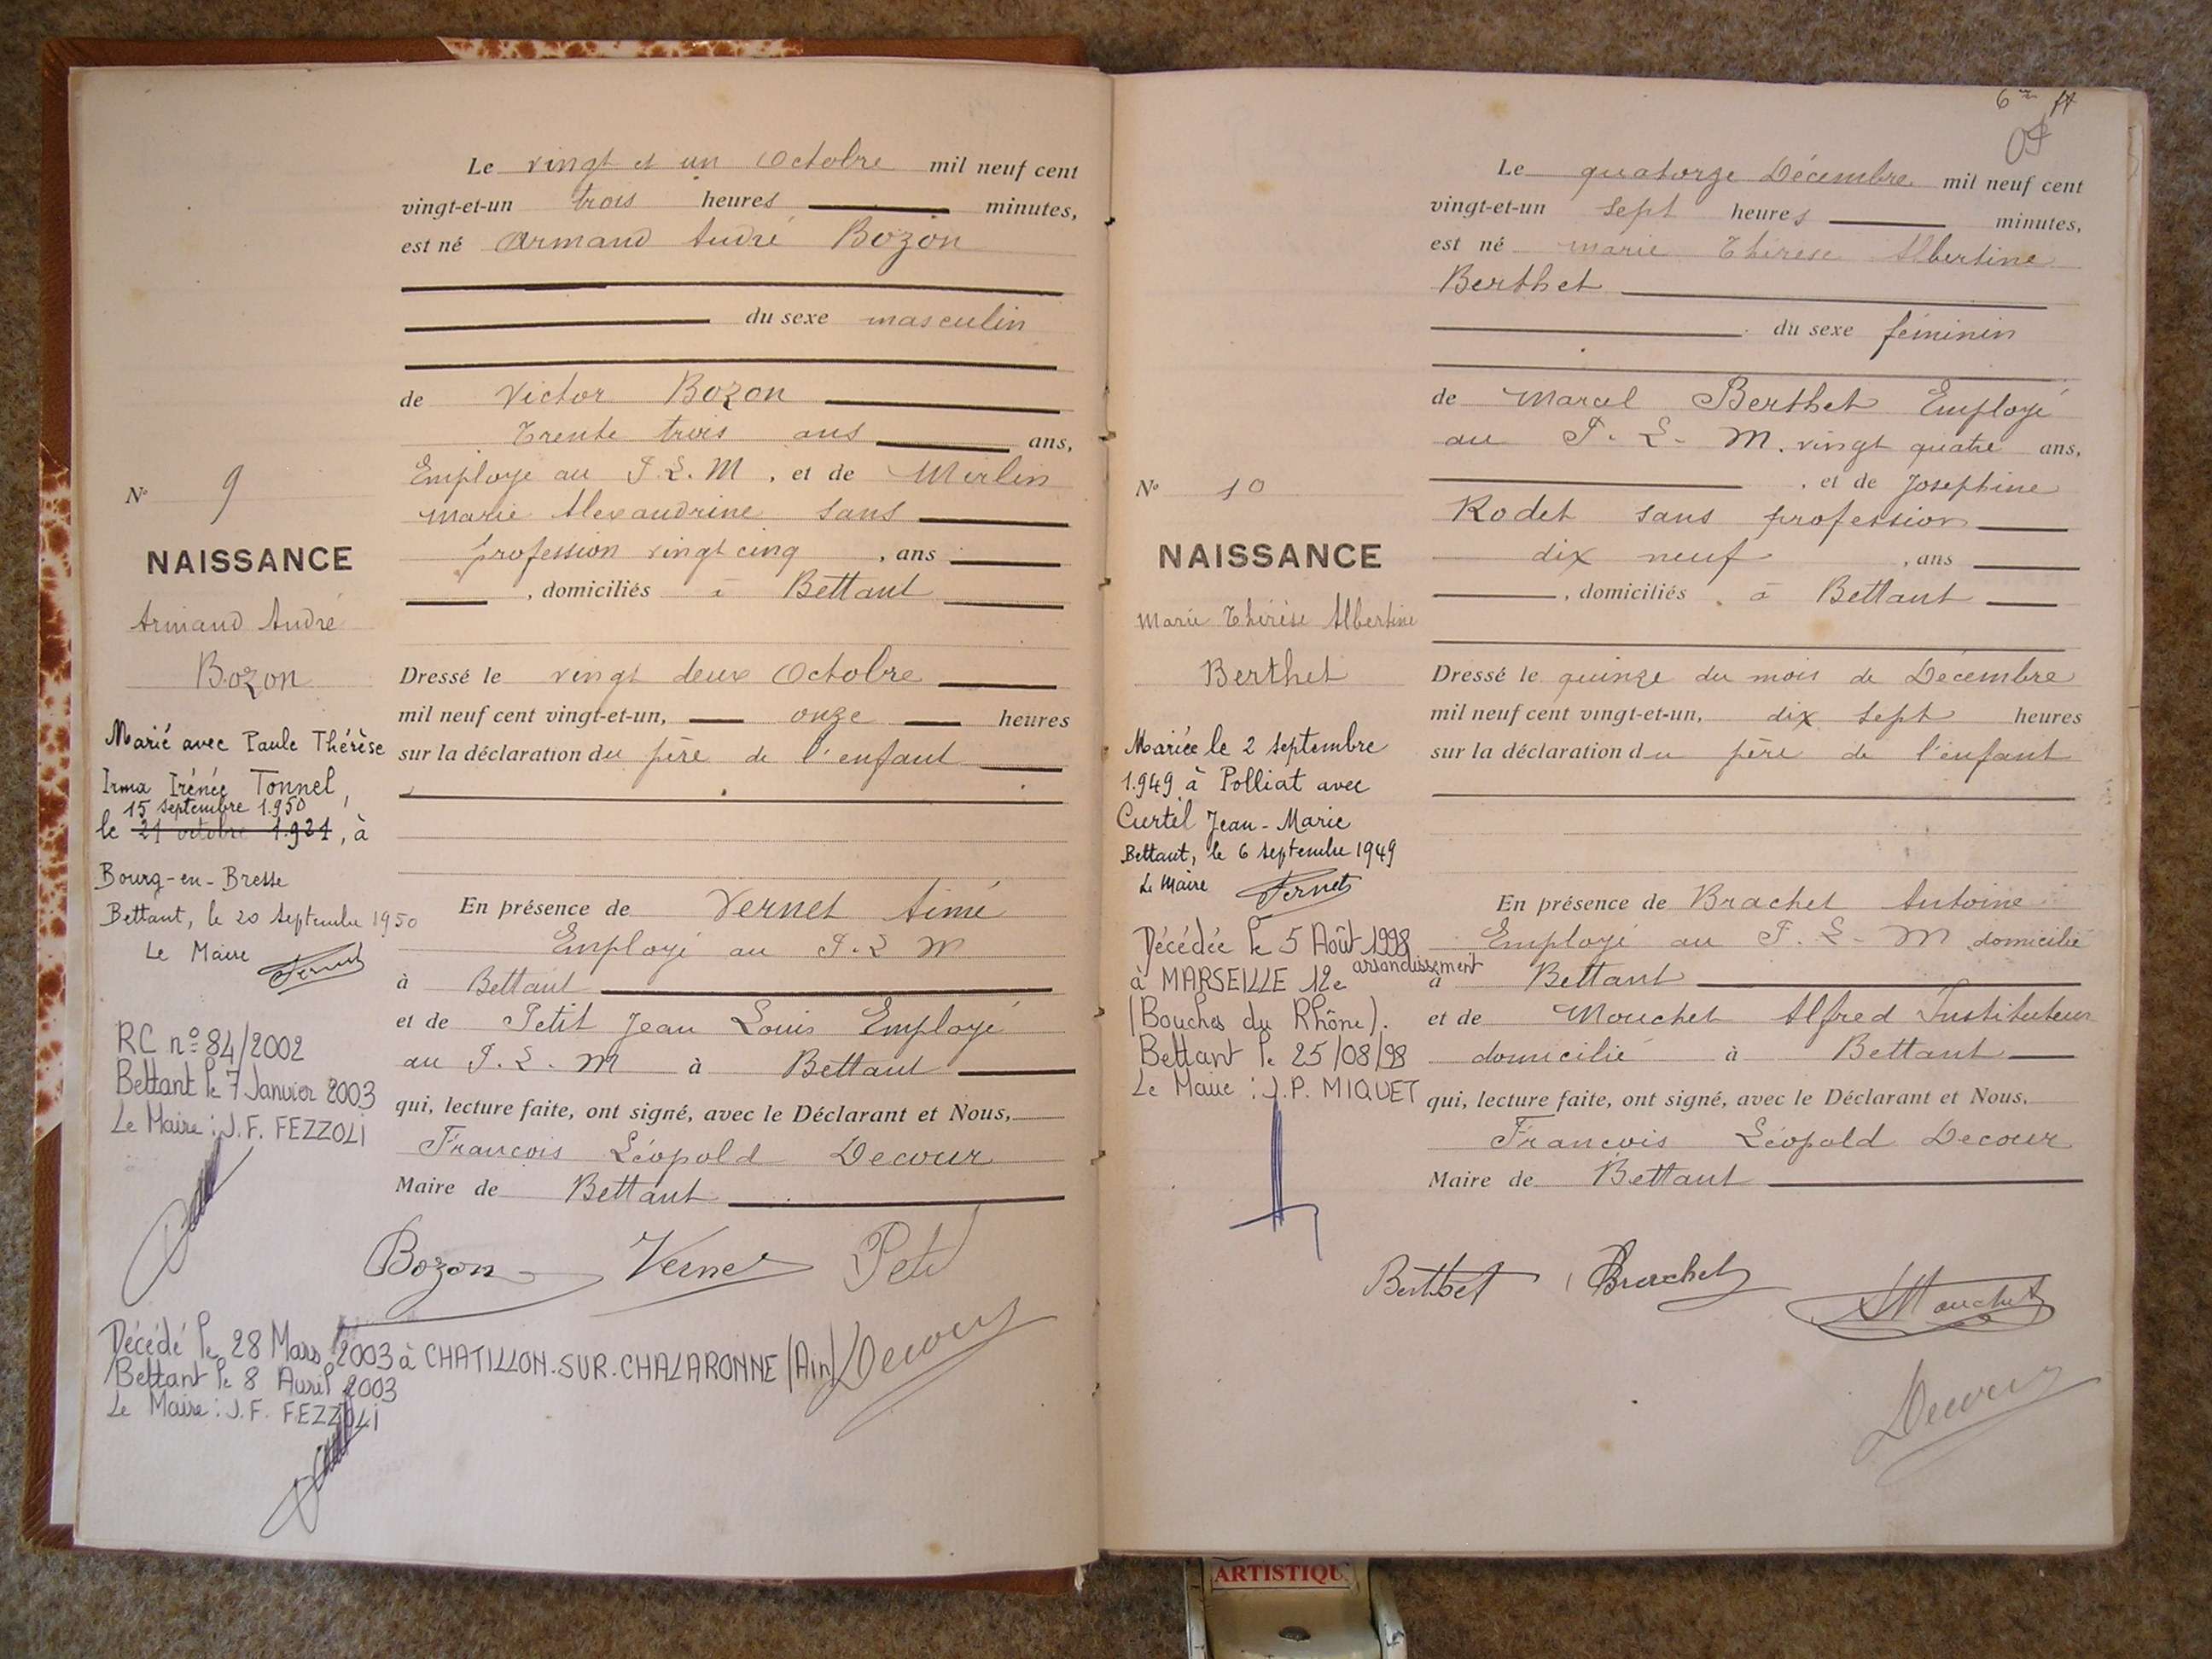 Le vingt et un Octobre mil neuf cent
vingt-et-un trois heures minutes,
est né Armand André Bozon
du sexe masculin
de Victor Bozon
Trente trois ans ans,
Employé au P.L.M, et de Merlin
Marie Alexandrine sans
profession vingt cinq, ans
, domiciliés à Bettant
Dressé le vingt deux Octobre
mil neuf cent vingt-et-un, onze heures
sur la déclaration du père de l'enfant
En présence de Vernet Aimé
Employé au P.L M
à Bettant
et de Petit Jean Louis Employé
au P.L.M à Bettant
qui, lecture faite, ont signé, avec le Déclarant et Nous,
François Léopold Decour
Maire de Bettant
Bozon Vernet Petit
Decour
N° 9
NAISSANCE
Armand André
Bozon
Marié avec Paule Thérèse
Irma Irénée Tonnel,
15 septembre 1.950
le 21 octobre 1.921, à
Bourg-en-Bresse
Bettant, le 20 septembre 1950
Le Maire Vernet
RC n° 84/2002
Bettant le 7 Janvier 2003
Le Maire : J.F. FEZZOLI
Décédé le 28 Mars 2003 à CHATILLON.SUR.CHALARONNE (Ain)
Bettant le 8 Avril 2003
Le Maire : J.F. FEZZOLI
Le quatorze Décembre mil neuf cent
vingt-et-un sept heures minutes,
est né marie Thérèse Albertine
Berthet
du sexe féminin
de Marcel Berthet Employé
au P.L.M. vingt quatre ans,
, et de Josephine
Rodet sans profession
dix neuf, ans
, domiciliés à Bettant
Dressé le quinze du mois de Décembre
mil neuf cent vingt-et-un, dix sept heures
sur la déclaration du père de l'enfant
En présence de Brachet Antoine
Employé au P.L.M domicilié
à Bettant
et de Mouchet Alfred Instituteur
domicilié à Bettant
qui, lecture faite, ont signé, avec le Déclarant et Nous,
François Léopold Decour
Maire de Bettant
Berthet Brachet Mouchet
Decour
N° 10
NAISSANCE
Marie Thérèse Albertine
Berthet
Mariée le 2 septembre
1.949 à Polliat avec
Curtil Jean-Marie
Bettant, le 6 septembre 1949
Le Maire Vernet
Décédée le 5 Août 1998
à MARSEILLE 12e arrondissement
(Bouches du Rhône).
Bettant le 25/08/98
Le Maire : J.P. MIQUET
ARTISTIQU